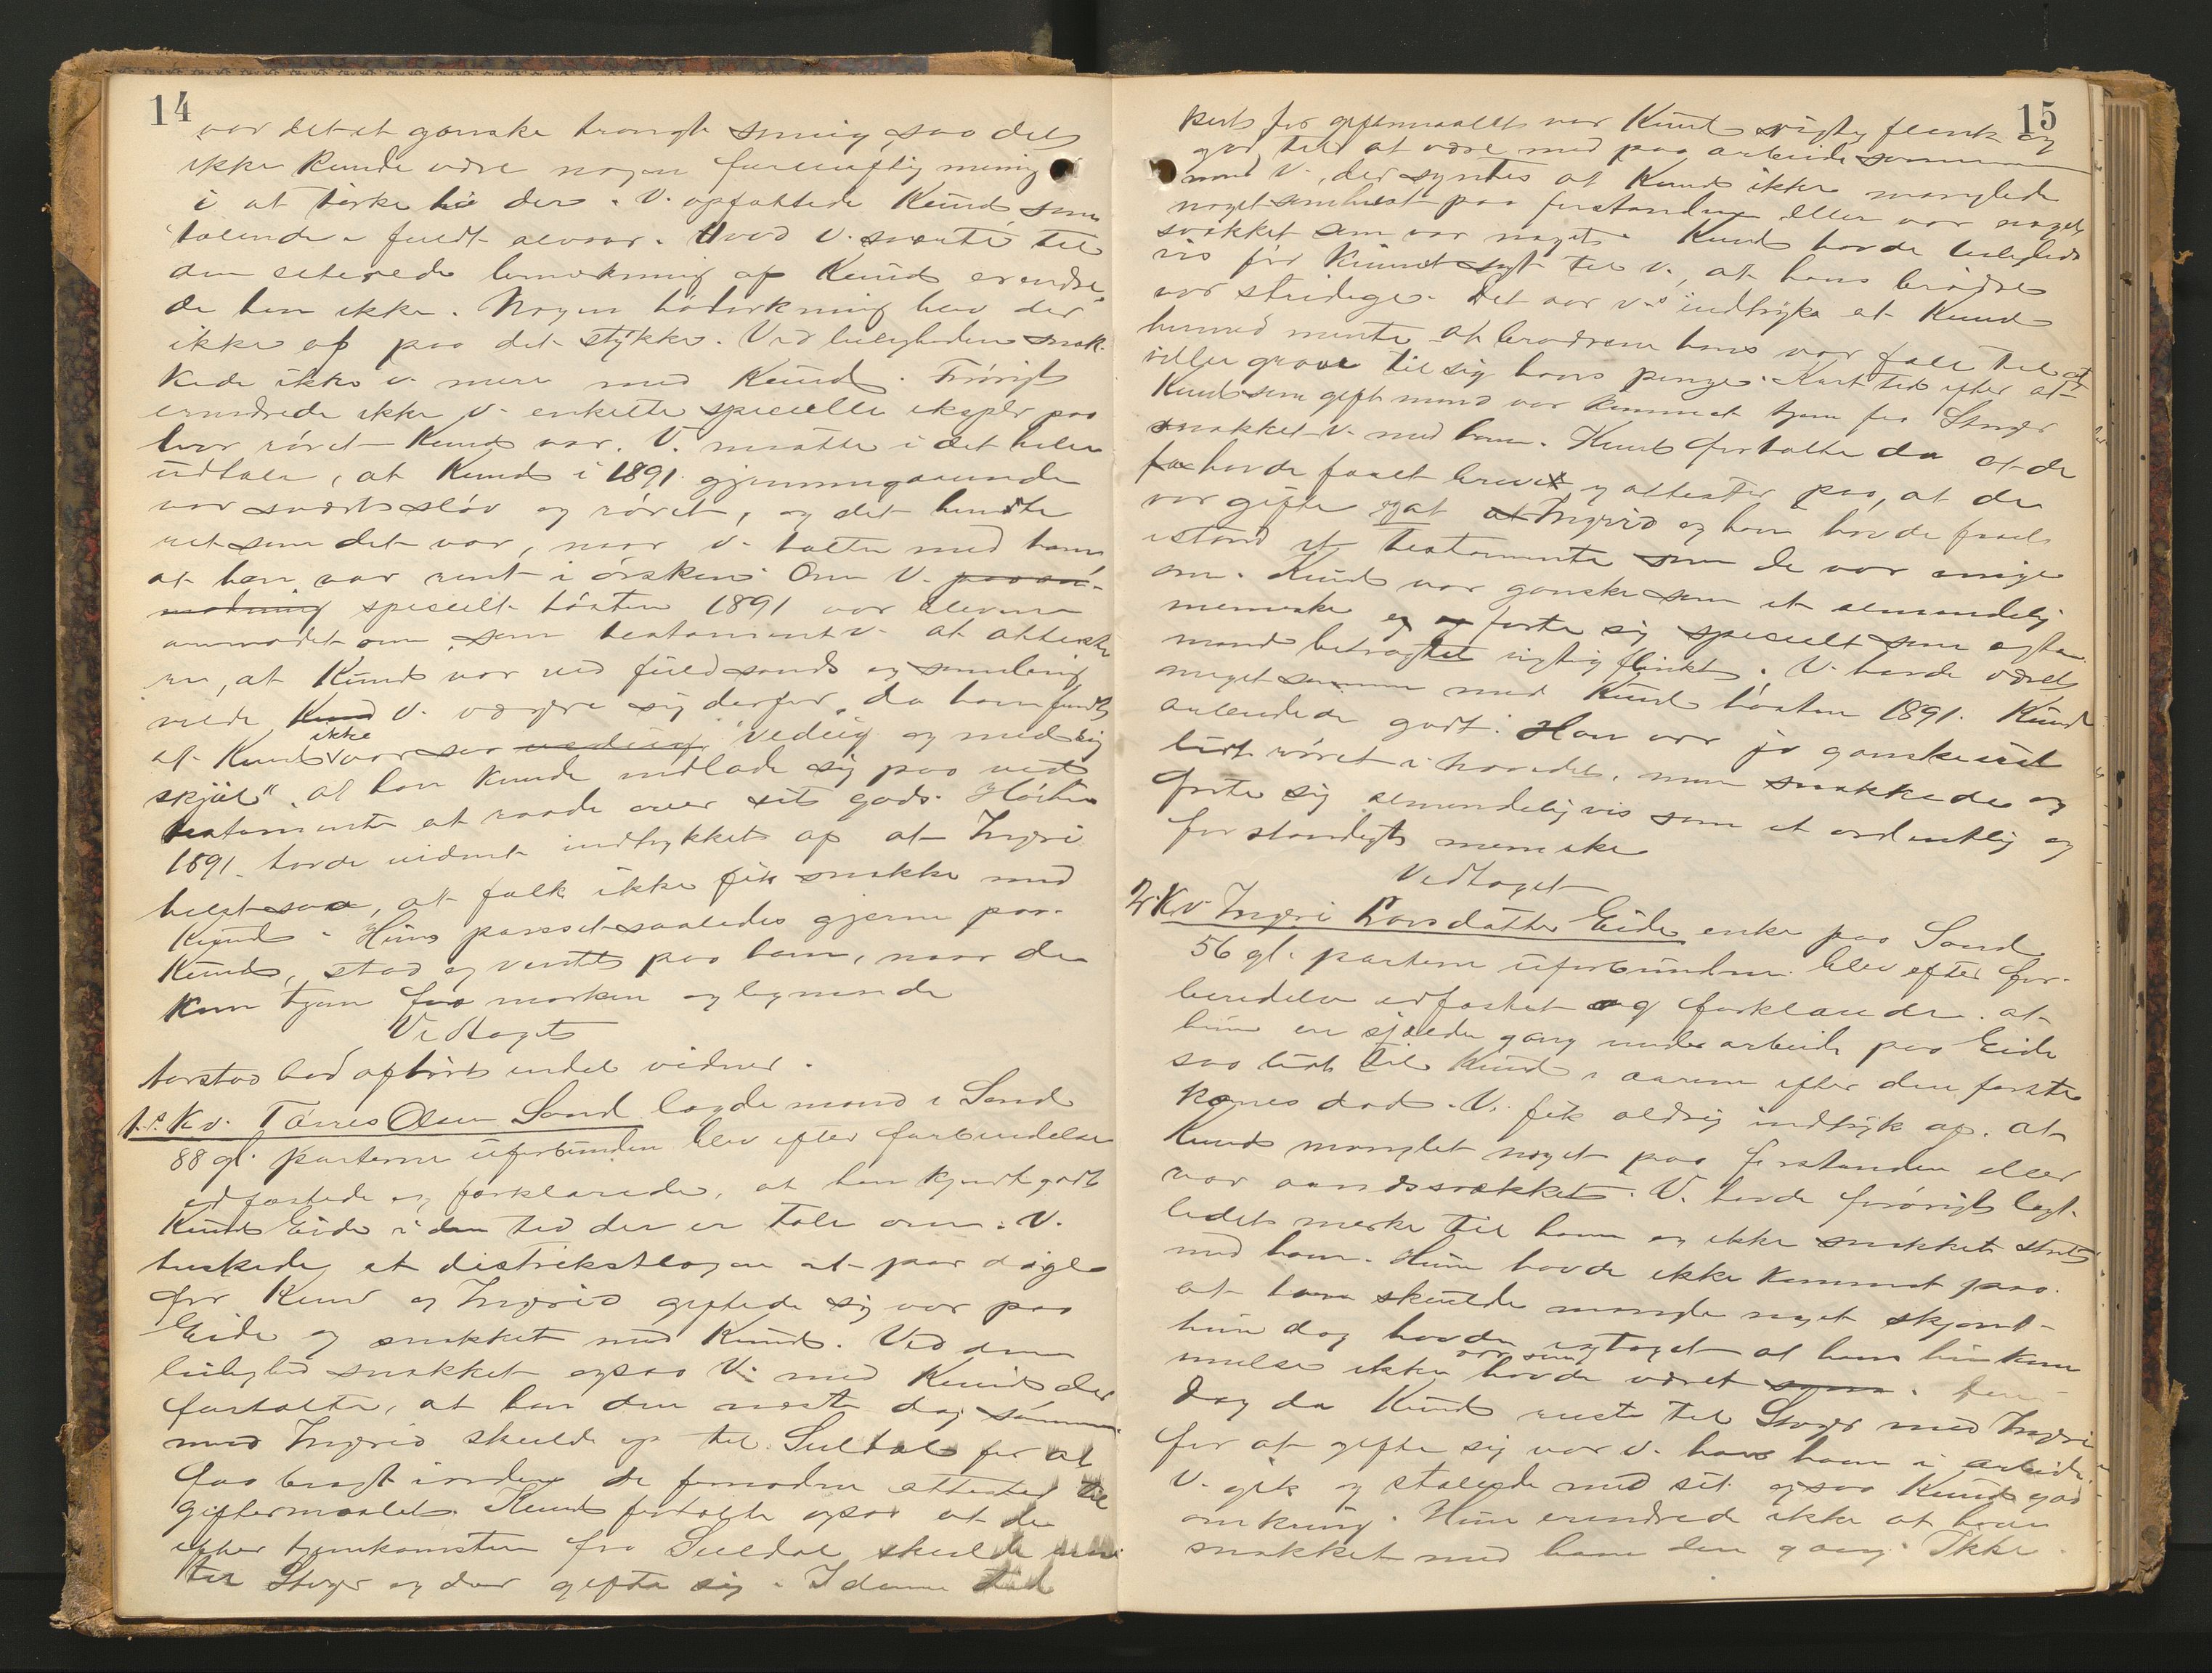 14
var det et ganske trangt smug, saa det
ikke kunde være nogen fornuftig mening
i at tørke hø der. V. opfattede Knud som
talende i fuldt alvor. Hvad V. svarte til
den citerede bemerkning af Knud erindre-
de han ikke. Nogen høtørkning blev der
ikke af paa det stykke. Ved leiligheden snak-
kede ikke v. mere med Knud. Forøvrigt
erindrede ikke v. enkelte specielle ekspler paa
hvor røret Knud var. V. maatte i det hele
udtale, at Knud i 1891 gjennemgaaende
var svært sløv og røret, og det hendte
ret som det var, naar v. talte med ham,
at han var rent i ørsken. Om V. paa an-
modning specielt høsten 1891 var bleven
anmodet om, som testamentv. at atteste-
re, at Knud var ved fuld sands og samling
vilde Knud V. vægre sig derfor, da han fandt
at Knud ikke var saa vedvig "vedvig og med sig
skjæl", at han kunde indlade sig paa ved
testamente at raade over sit gods. Høsten
1891 havde vidnet indtrykket af at Ingri
helst saa, at folk ikke fik snakke med
Knud. Hun passet saaledes gjerne paa
Knud, stod og ventet paa ham, naar de
kom hjem fra marken og lignende
Vedtaget
Torstad lod afhøre endel vidner.
1ste K.v. Tørres Olsen Sand laugde mand i Sand
88 gl. parterne uforbunden blev efter forberedelse
edfæstede og forklarede, at han kjendte godt
Knud Eide i den tid der er tale om. V.
huskede at distriktslægen et par dage
før Knud og Ingrid giftede sig var paa
Eide og snakket med Knud. Ved den
leilighed snakket ogsaa V. med Knud der
fortalte, at han den næste dag sammen
med Ingrid skulde op til Suldal for at
faa bragt iorden de fornødne attester til
giftermaalet. Knud fortalte ogsaa at de
efter hjemkomsten fra Suldal skulde
til Stvgr og der gifta sig. I denne tid
15
kort før giftermaalet var Knud rigtig flink og
god til at være med paa arbeide sammen
med V., der syntes at Knud ikke manglede
noget somhelst paa forstanden eller var noget
svækket som var noget. Knud havde leiligheds-
vis før kunnet sagt til V., at hans brødre
var stridige. Det var v's indtryk at Knud
hermed mente at brødrene hans var fæle til at
ville grave til sig hans penge. Kort tid efter at
Knud som gift mand var kommet hjem fra Stvgr
snakket V. med ham. Knud fortalte da at de
fa havde faaet brevet og attester paa, at de
var gifte og at at Ingrid og han havde faaet
istand et testamente som de var enige
om. Knud var ganske som et almindelig
menneske og og førte sig specielt som ægte-
mand betragtet rigtig flinkt. V. havde været
meget sammen med Knud høsten 1891. Knud
arbeidede godt. Han var jo ganske vist
lidt røret i hovedet, men snakkede og
førte sig almindeligvis som et ordentlig og
forstandigt menneske
Vedtaget
2. K.v. Ingri Larsdatter Eide enke paa Sand
56 gl. parterne uforbunden blev efter for-
beredelse edfæstet og forklarede at
hun en sjelden gang under arbeide paa Eide
saa lidt til Knud i aarene efter den første
kones død. V. fik aldrig indtryk af at
Knud manglet noget paa forstanden eller
var aandssvækket. V. havde forøvrigt lagt
lidet merke til ham og ikke snakket stort
med ham. Hun havde ikke kommet paa
at han skulde mangle noget skjønt
hun dog havde iagtaget at hans hukom-
melse ikke havde været som var som før. Den
dag da Knud reiste til Stvgr med Ingri
for at gifte sig var v. hos ham i arbeide.
V. gik og stelede med sit og ogsaa Knud gad
omkring. Hun erindred ikke at have
snakket med ham den gang. Ikke